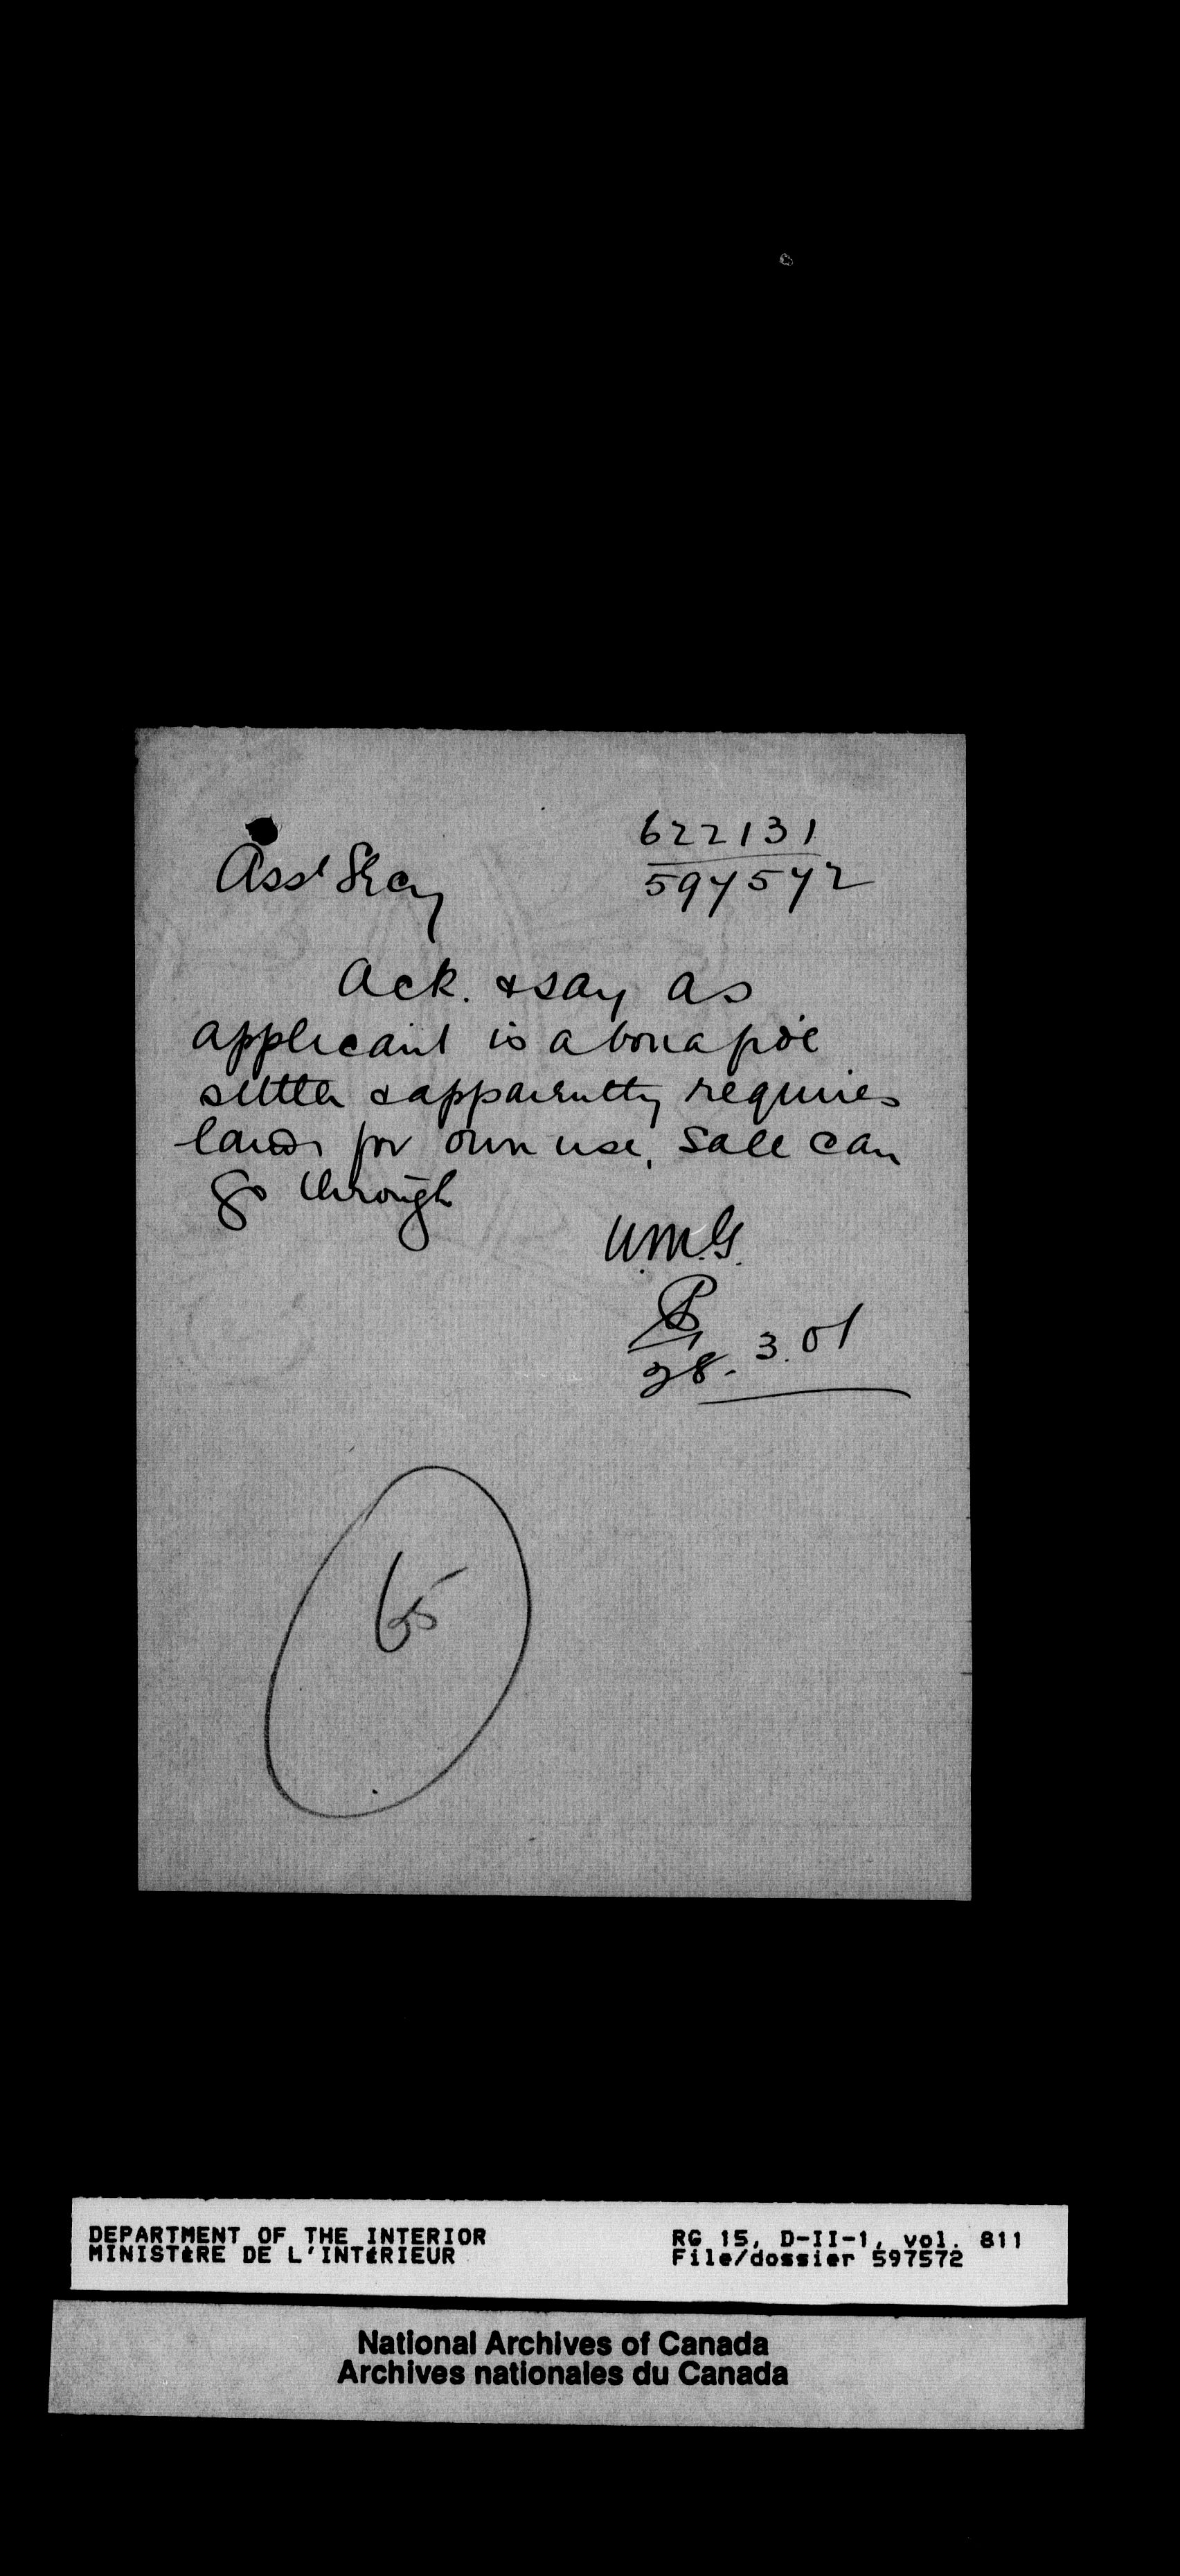 622131
Asst Secy 597572
Ack. & say as
applicant is a bona fide
settler & apparently requires
lands for own use, sale can
go through
28. 3. 01
65
DEPARTMENT OF THE INTERIOR
MINISTÈRE DE L'INTÉRIEUR
RG 15, D-II-1, vol. 811
File/dossier 597572
National Archives of Canada
Archives nationales du Canada